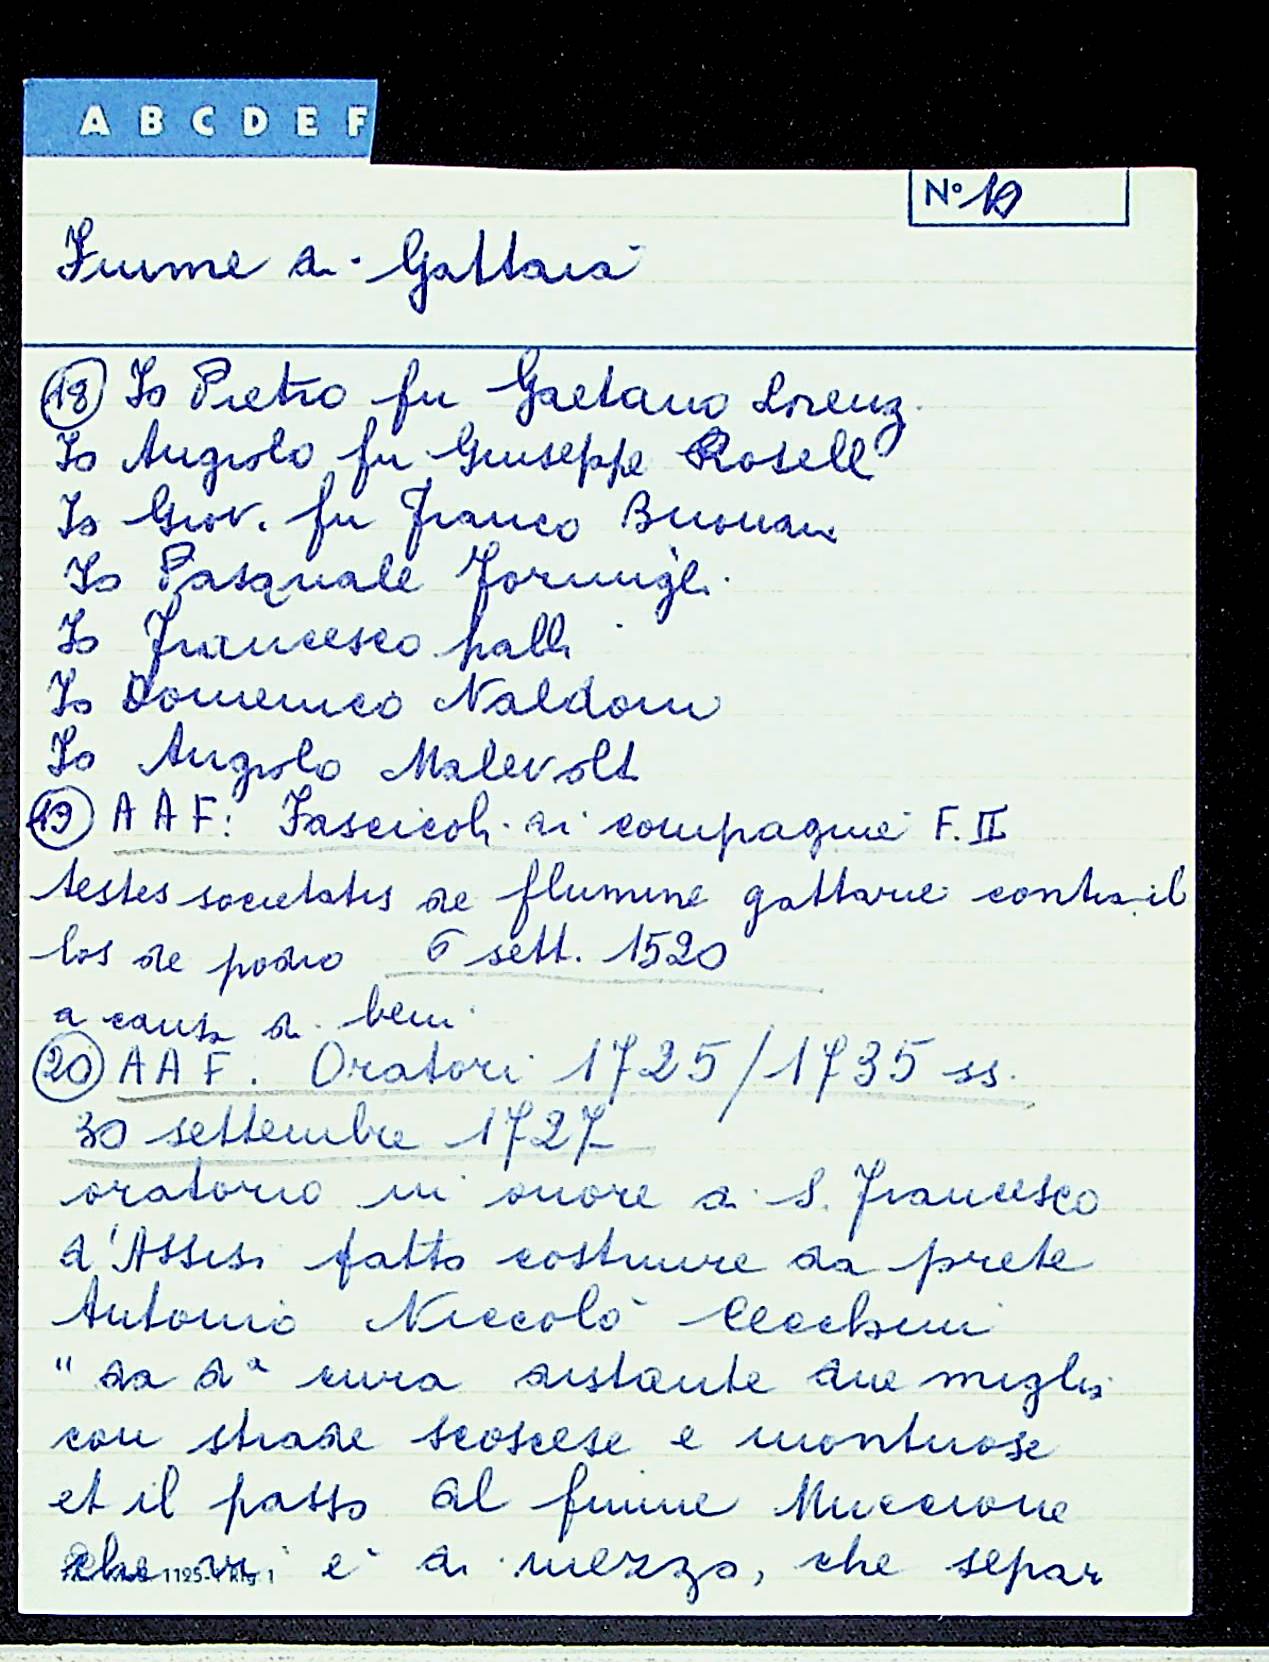 A B C D E F
N° 19
Fiume di Gattaia
(18) Io Pietro fu Gaetano Lorenz.
Io Angiolo fu Giuseppe Roselli
Io Giov. fu Franco Buonani
Io Pasquale Formigli
Io Francesco Palli
Io Domenico Naldoni
Io Angiolo Malevolti
(19) AAF: Fascicoli di compagnie F. II
testes societatis de flumine gattarie contra il
los de podio 6 sett. 1520
a causa di beni
(20) AAF. Oratori 1725/1735 ss.
30 settembre 1727
oratorio in onore di S. Francesco
d'Assisi fatto costruire da prete
Antonio Niccolò Cecchini
"da da cura distante due miglia
con strade scoscese e montuose
et il passo al fiume Muccione
che vi è di mezzo, che separ